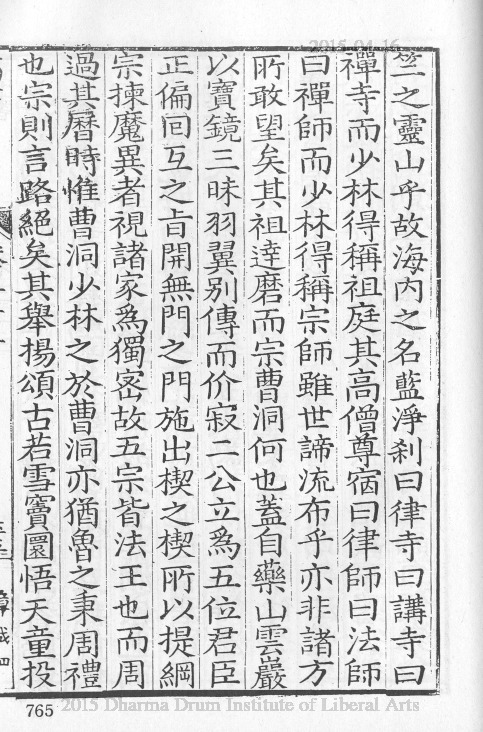 2015-04-16
竺之靈山乎故海內之名藍淨刹曰律寺曰講寺曰
禪寺而少林得稱祖庭其高僧尊宿曰律師曰法師
曰禪師而少林得稱宗師雖世諦流布乎亦非諸方
所敢望矣其祖達磨而宗曹洞何也蓋自藥山雲巖
以寶鏡三昧羽翼別傳而价寂二公立爲五位君臣
正偏回互之旨開無門之門施出楔之楔所以提綱
宗揀魔異者視諸家爲獨密故五宗皆法王也而周
過其曆時惟曹洞少林之於曹洞亦猶魯之秉周禮
也宗則言路絕矣其舉揚頌古若雪竇圜悟天童投
765
2015 Dharma Drum Institute of Liberal Arts